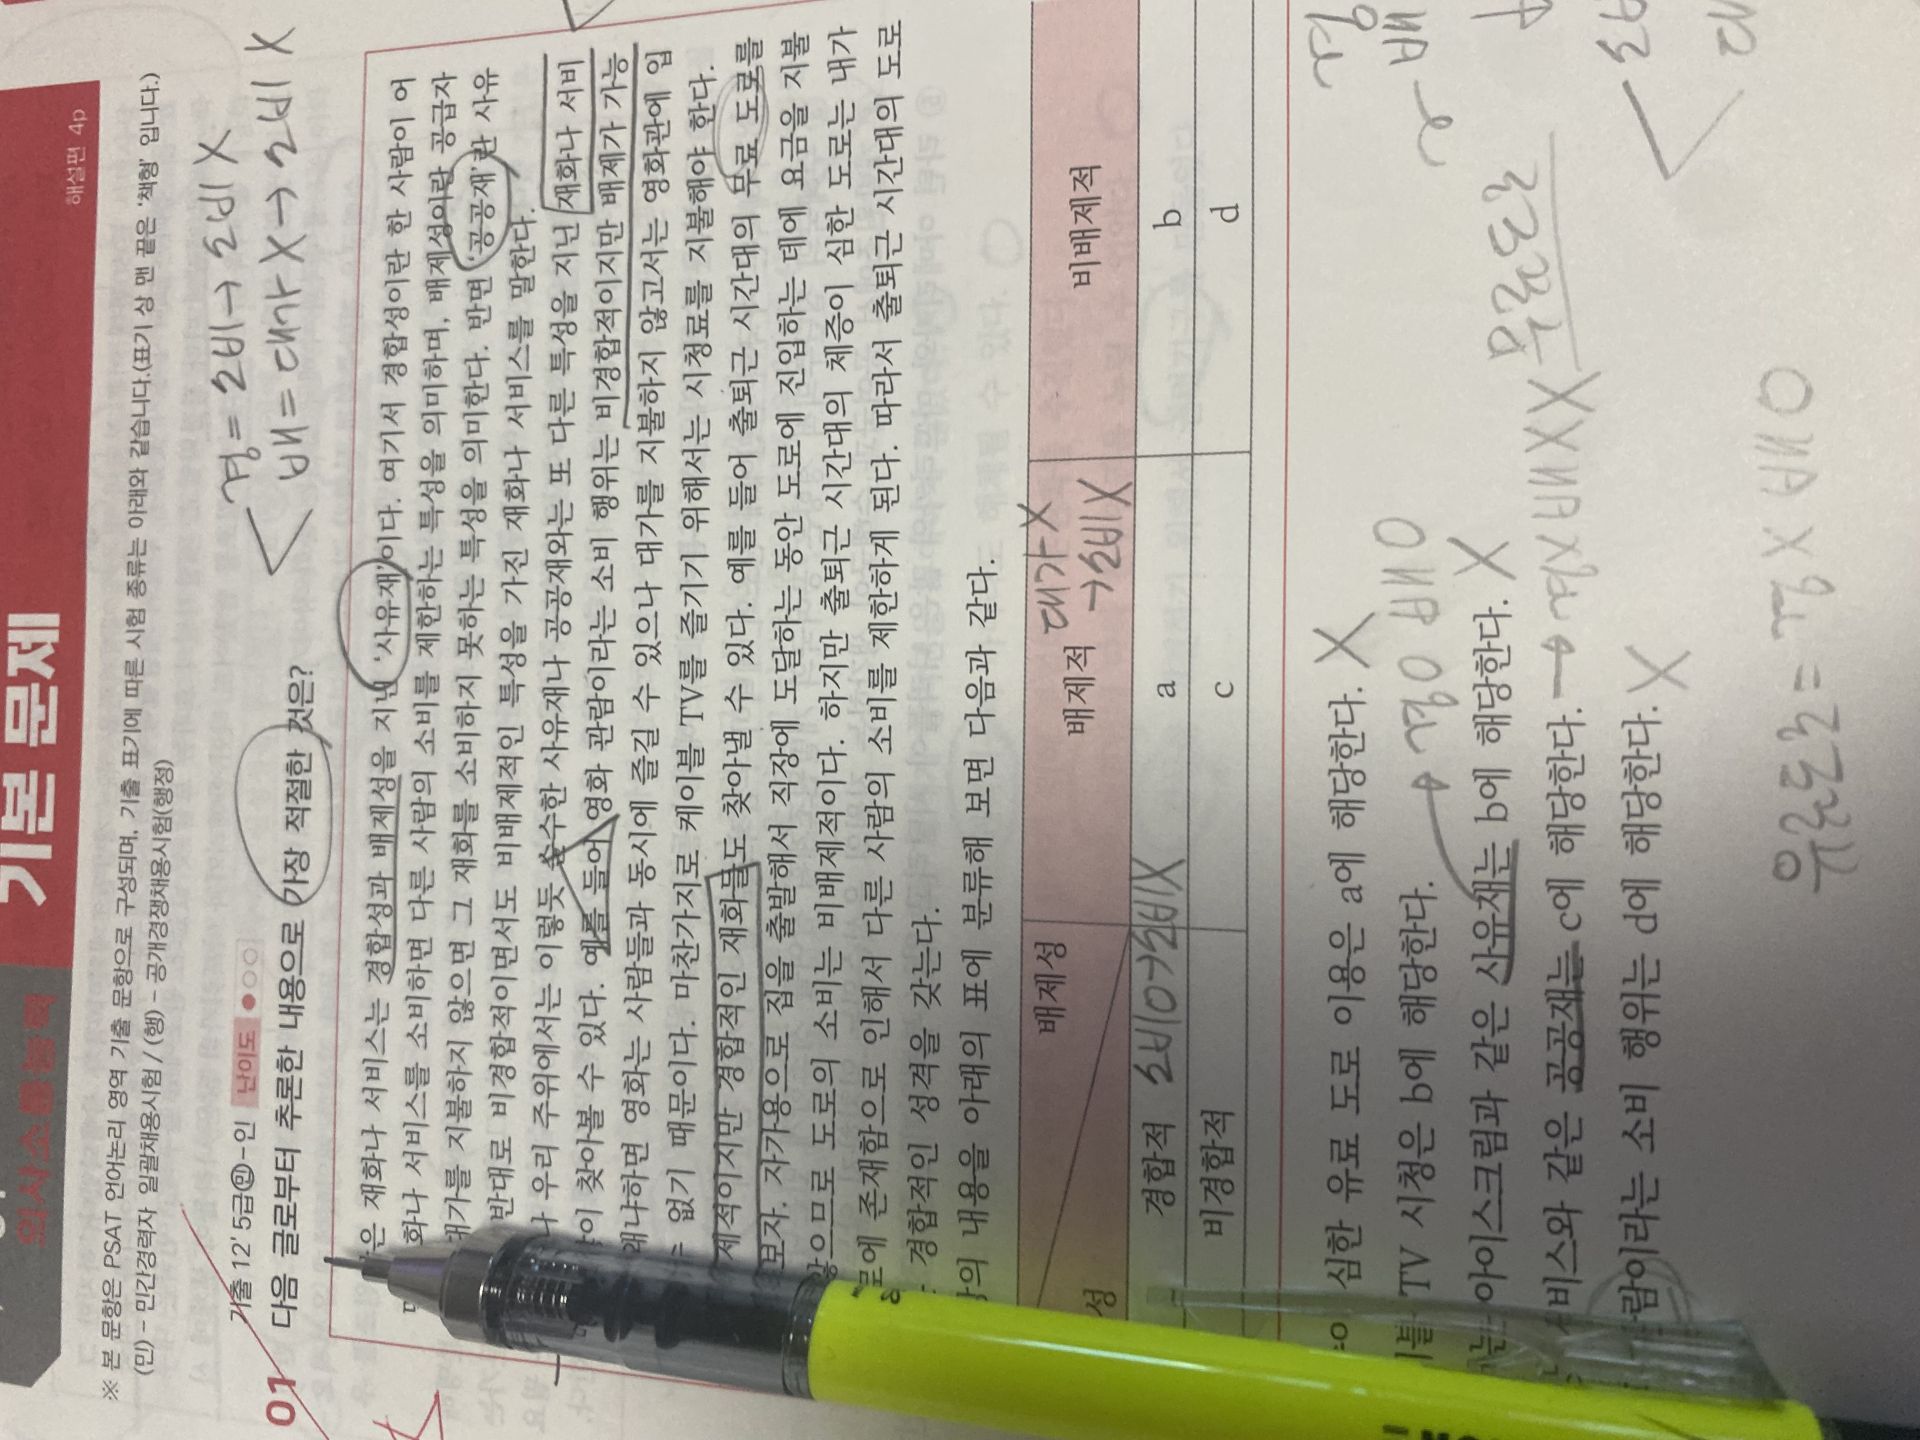 기본 문제
해설편 4p
의사소통능력
※ 본 문항은 PSAT 언어논리 영역 기출 문항으로 구성되며, 기출 표기에 따른 시험 종류는 아래와 같습니다.(표기 상 맨 끝은 '책형' 입니다.)
(민) - 민간경력자 일괄채용시험 / (행) - 공개경쟁채용시험(행정)
경 = 소비 → 소비 X
배 = 대가 X → 소비 X
01
기출 12' 5급(민)-인 난이도 ●○○
다음 글로부터 추론한 내용으로 가장 적절한 것은?
은 재화나 서비스는 경합성과 배제성을 지닌 '사유재'이다. 여기서 경합성이란 한 사람이 어
화나 서비스를 소비하면 다른 사람의 소비를 제한하는 특성을 의미하며, 배제성이란 공급자
대가를 지불하지 않으면 그 재화를 소비하지 못하는 특성을 의미한다. 반면 '공공재'란 사유
반대로 비경합적이면서도 비배제적인 특성을 가진 재화나 서비스를 말한다.
나 우리 주위에서는 이렇듯 순수한 사유재나 공공재와는 또 다른 특성을 지닌 재화나 서비
이 찾아볼 수 있다. 예를 들어 영화 관람이라는 소비 행위는 비경합적이지만 배제가 가능
왜냐하면 영화는 사람들과 동시에 즐길 수 있으나 대가를 지불하지 않고서는 영화관에 입
없기 때문이다. 마찬가지로 케이블 TV를 즐기기 위해서는 시청료를 지불해야 한다.
제적이지만 경합적인 재화들도 찾아낼 수 있다. 예를 들어 출퇴근 시간대의 무료 도로를
보자. 자가용으로 집을 출발해서 직장에 도달하는 동안 도로에 진입하는 데에 요금을 지불
않으므로 도로의 소비는 비배제적이다. 하지만 출퇴근 시간대의 체증이 심한 도로는 내가
로에 존재함으로 인해서 다른 사람의 소비를 제한하게 된다. 따라서 출퇴근 시간대의 도로
경합적인 성격을 갖는다.
의 내용을 아래의 표에 분류해 보면 다음과 같다.
대가 X
→ 소비 X
배제성 배제적 비배제적
성
경합적 소비O→소비X a b
비경합적 c d
심한 유료 도로 이용은 a에 해당한다. X
TV 시청은 b에 해당한다. → 경O 배O
아이스크림과 같은 사유재는 b에 해당한다. X
비스와 같은 공공재는 c에 해당한다. → 경X 배XX 무료도로
람이라는 소비 행위는 d에 해당한다. X
유료도로 = 경 X 배 O
경
배